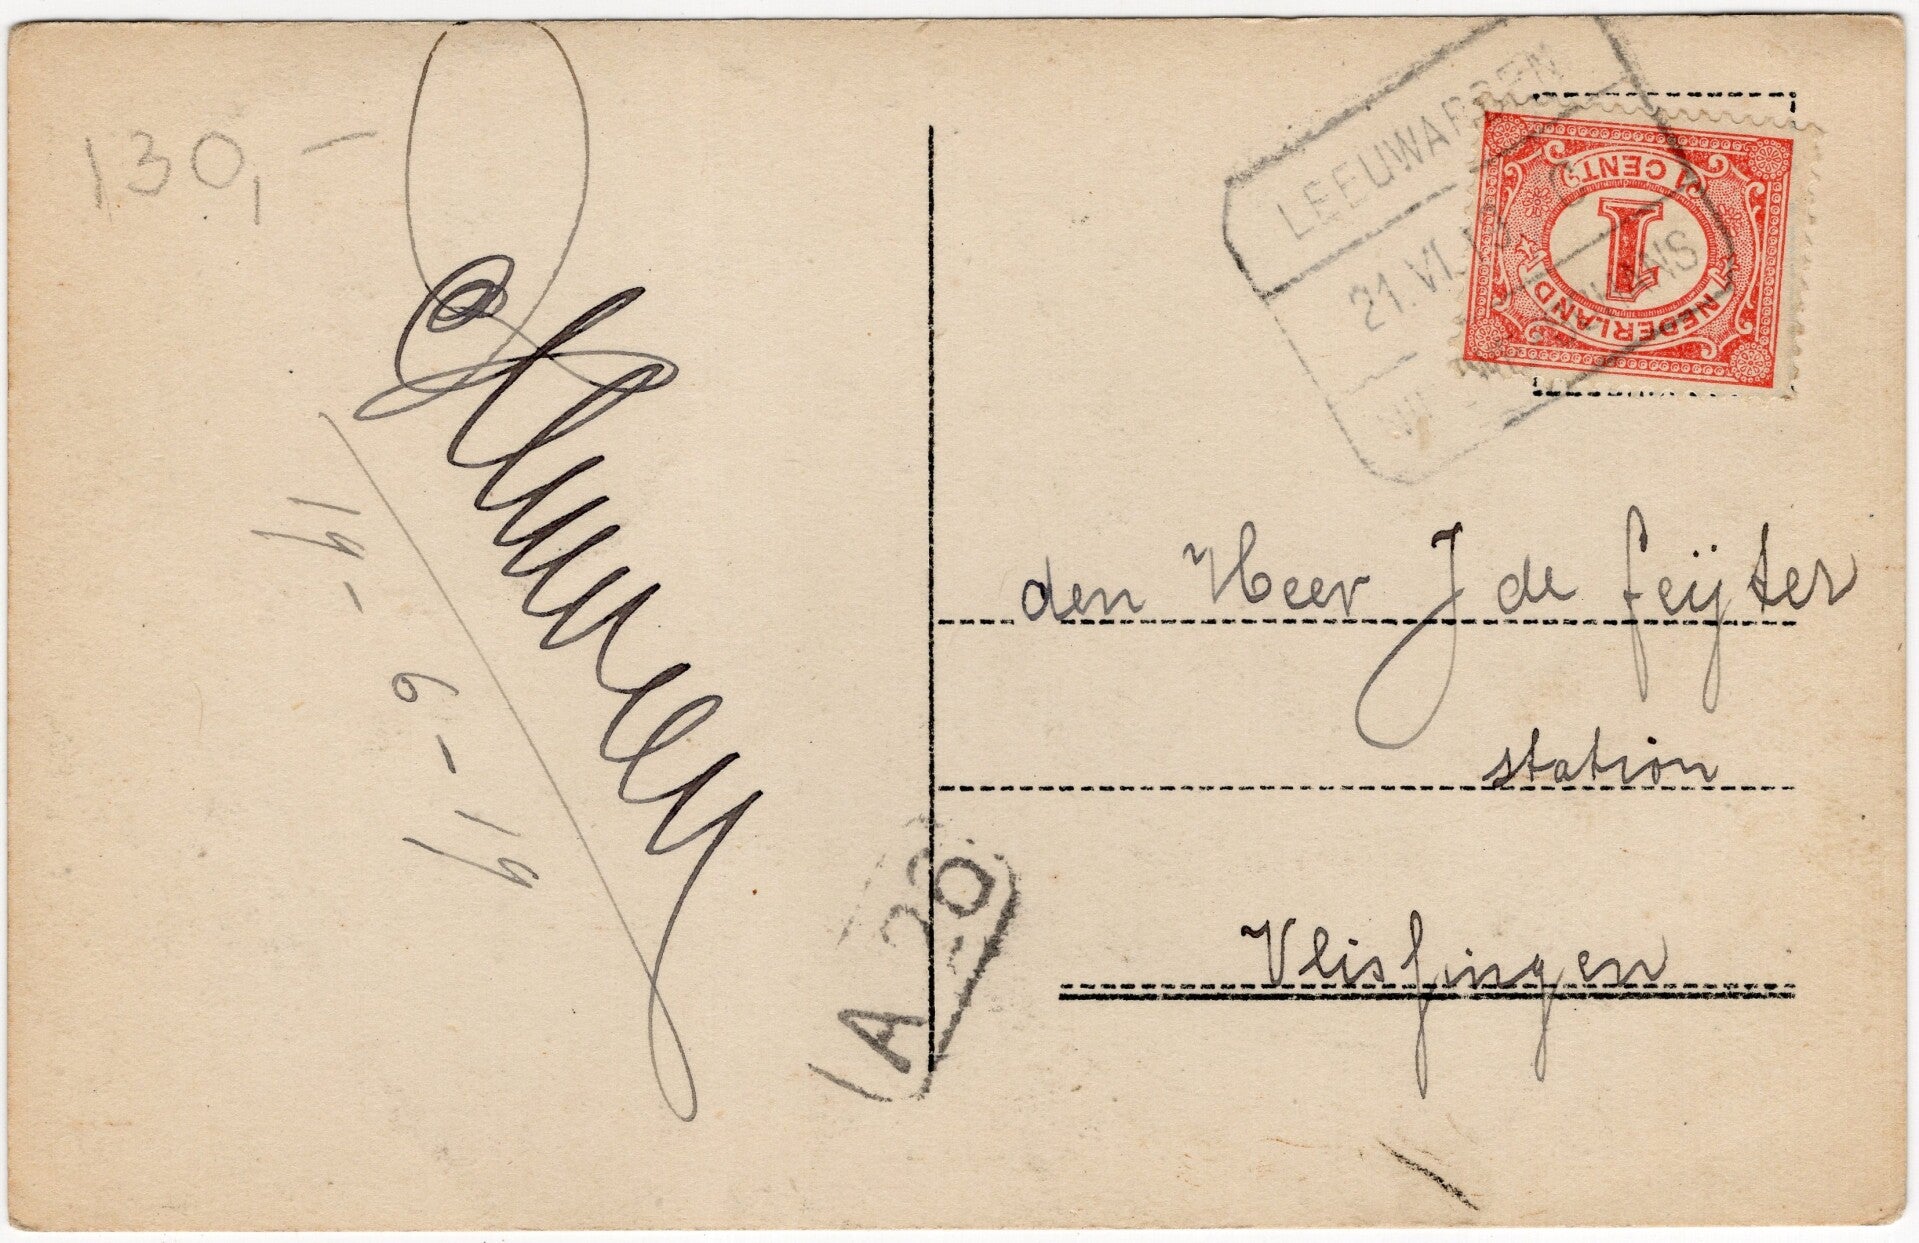 130,-
19-6-19
LEEUWARDEN
21.VI.19
1 CENT
1
NEDERLAND
den Heer J de feijter
station
Vlissingen
A 20